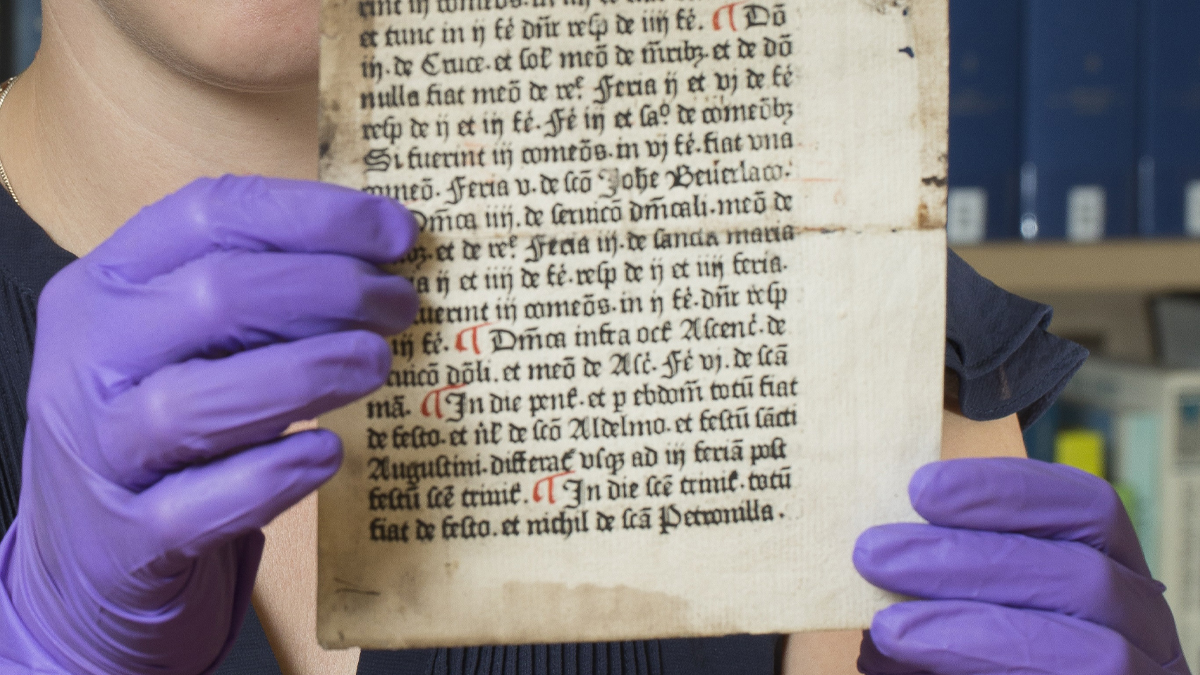 et tunc in ij fẻ dñr resp de iiij fẻ. ¶ Dõ
iij. de Cruce. et sol̛ meõ de m̃ribꝫ. et de dõ
nulla fiat meõ de reẜ. Feria ij et vj de fẻ
resp de ij et iij fẻ. Fẻ iij et saº de comeõbꝫ
Si fuerint iij comeõs. in vj fẻ. fiat vna
comeõ. Feria v. de scõ Joħe Beuerlaco.
Dm̃ca iiij. de seruicõ dm̃cali. meõ de
et de reẜ Feria iij. de sancta maria
ij et iiij de fẻ. resp de ij et iiij feria.
fuerint iij comeõs. in ij fẻ. dñr resp
iij fẻ. ¶ Dm̃ca infra oct̛ Ascenc̛. de
dõli. et meõ de Asc̛. Fẻ vj. de scã
mã. ¶ In die pent̛. et p ebdom̃ totũ fiat
de festo. et nͥl de scõ Aldelmo. et festũ sãcti
Augustini. differat̛ vsqꝫ ad iij feriã post
festũ scẽ trinit̛. ¶ In die scẽ trinit̛. totũ
fiat de festo. et nichil de scã Petronilla.